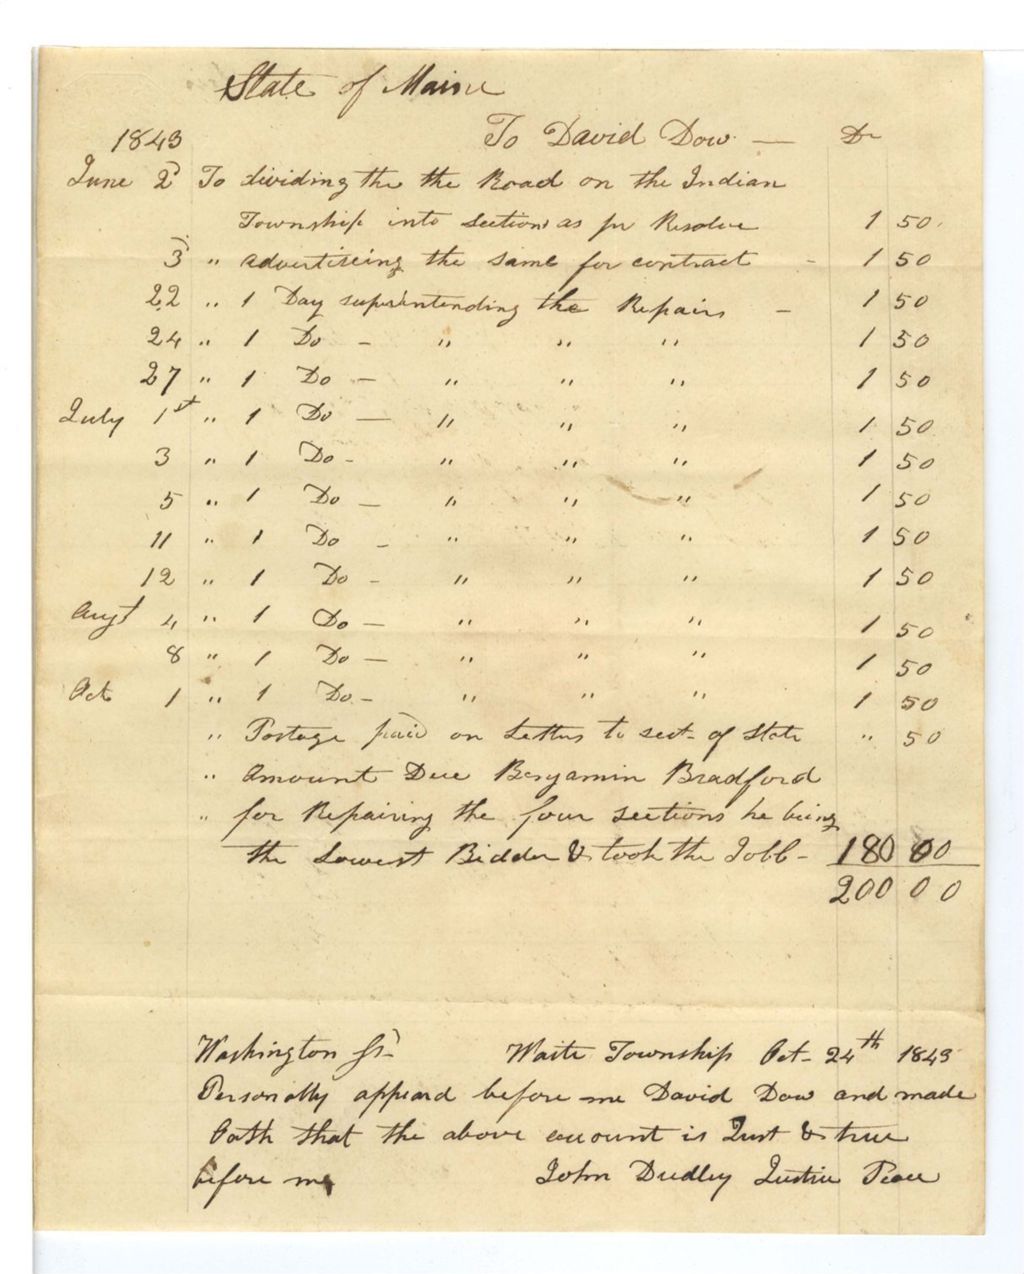 State of Maine
1843 To David Dow — Dr
June 2d To dividing the the Road on the Indian
Township into sections as pr Resolve 1 50
3 " advertiseing the same for contract - 1 50
22 " 1 Day superintending the Repairs - 1 50
24 " 1 Do - " " " 1 50
27 " 1 Do - " " " 1 50
July 1st " 1 Do — " " " 1 50
3 " 1 Do - " " " 1 50
5 " 1 Do - " " " 1 50
11 " 1 Do - " " " 1 50
12 " 1 Do - " " " 1 50
Augt 4 " 1 Do - " " " 1 50
8 " 1 Do - " " " 1 50
Oct 1 " 1 Do - " " " 1 50
" Postage paid on Letters to sect. of State " 50
" Amount Due Benjamin Bradford
" for Repairing the four sections he being
the Lowest Bidder & took the Jobb - 180 00
200 00
Washington Ss- Waite Township Oct- 24th 1843
Personally appeard before me David Dow and made
Oath that the above account is Just & true
before me John Dudley Justice Peace